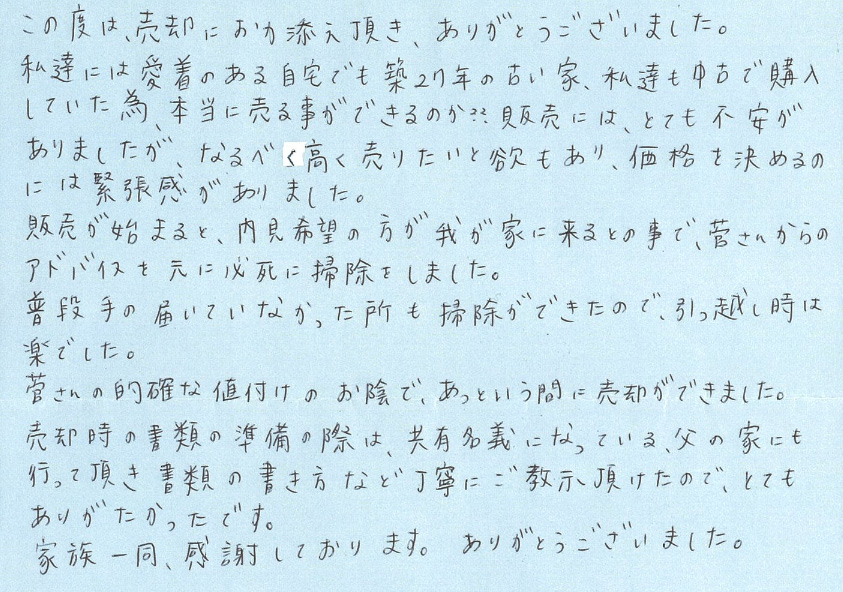 この度は、売却にお力添え頂き、ありがとうございました。
私達には愛着のある自宅でも築27年の古い家、私達も中古で購入
していた為、本当に売る事ができるのか?? 販売には、とても不安が
ありましたが、なるべく高く売りたいと欲もあり、価格を決めるの
には緊張感がありました。
販売が始まると、内見希望の方が我が家に来るとの事で、菅さんからの
アドバイスを元に必死に掃除をしました。
普段手の届いていなかった所も掃除ができたので、引っ越し時は
楽でした。
菅さんの的確な値付けのお陰で、あっという間に売却ができました。
売却時の書類の準備の際は、共有名義になっている、父の家にも
行って頂き書類の書き方など丁寧にご教示頂けたので、とても
ありがたかったです。
家族一同、感謝しております。 ありがとうございました。